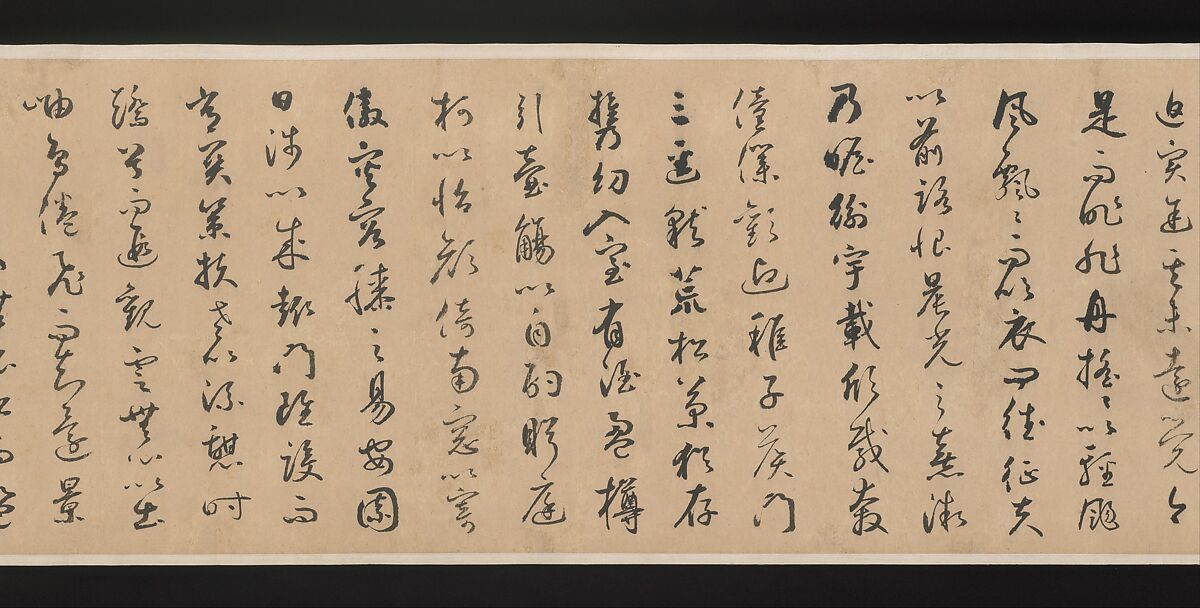 追實迷其未遠覺今
是而昨非舟搖〻以輕颺
風飄〻而吹衣問征夫
以前路恨晨光之熹微
乃瞻衡宇載欣載奔
僮僕歡迎稚子候門
三逕就荒松菊猶存
攜幼入室有酒盈樽
引壺觴以自酌眄庭
柯以怡顏倚南窗以寄
傲審容膝之易安園
日涉以成趣門雖設而
常關策扶老以流憩時
矯首而遐觀雲無心以出
岫鳥倦飛而知還景